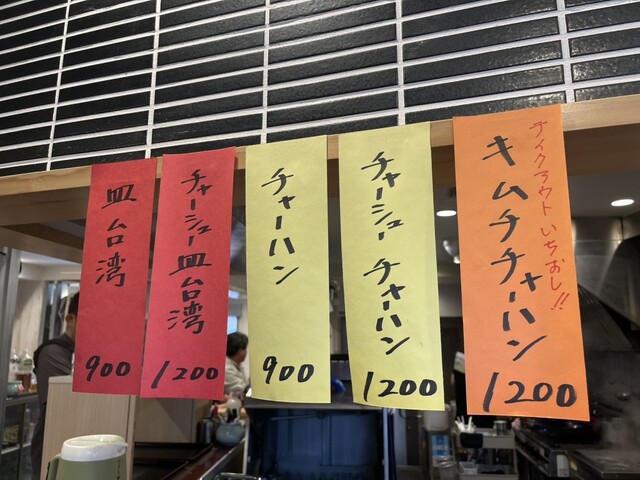 皿台湾
900
チャーシュー皿台湾
1200
チャーハン
900
チャーシューチャーハン
1200
テイクアウトいちおし!!
キムチチャーハン
1200